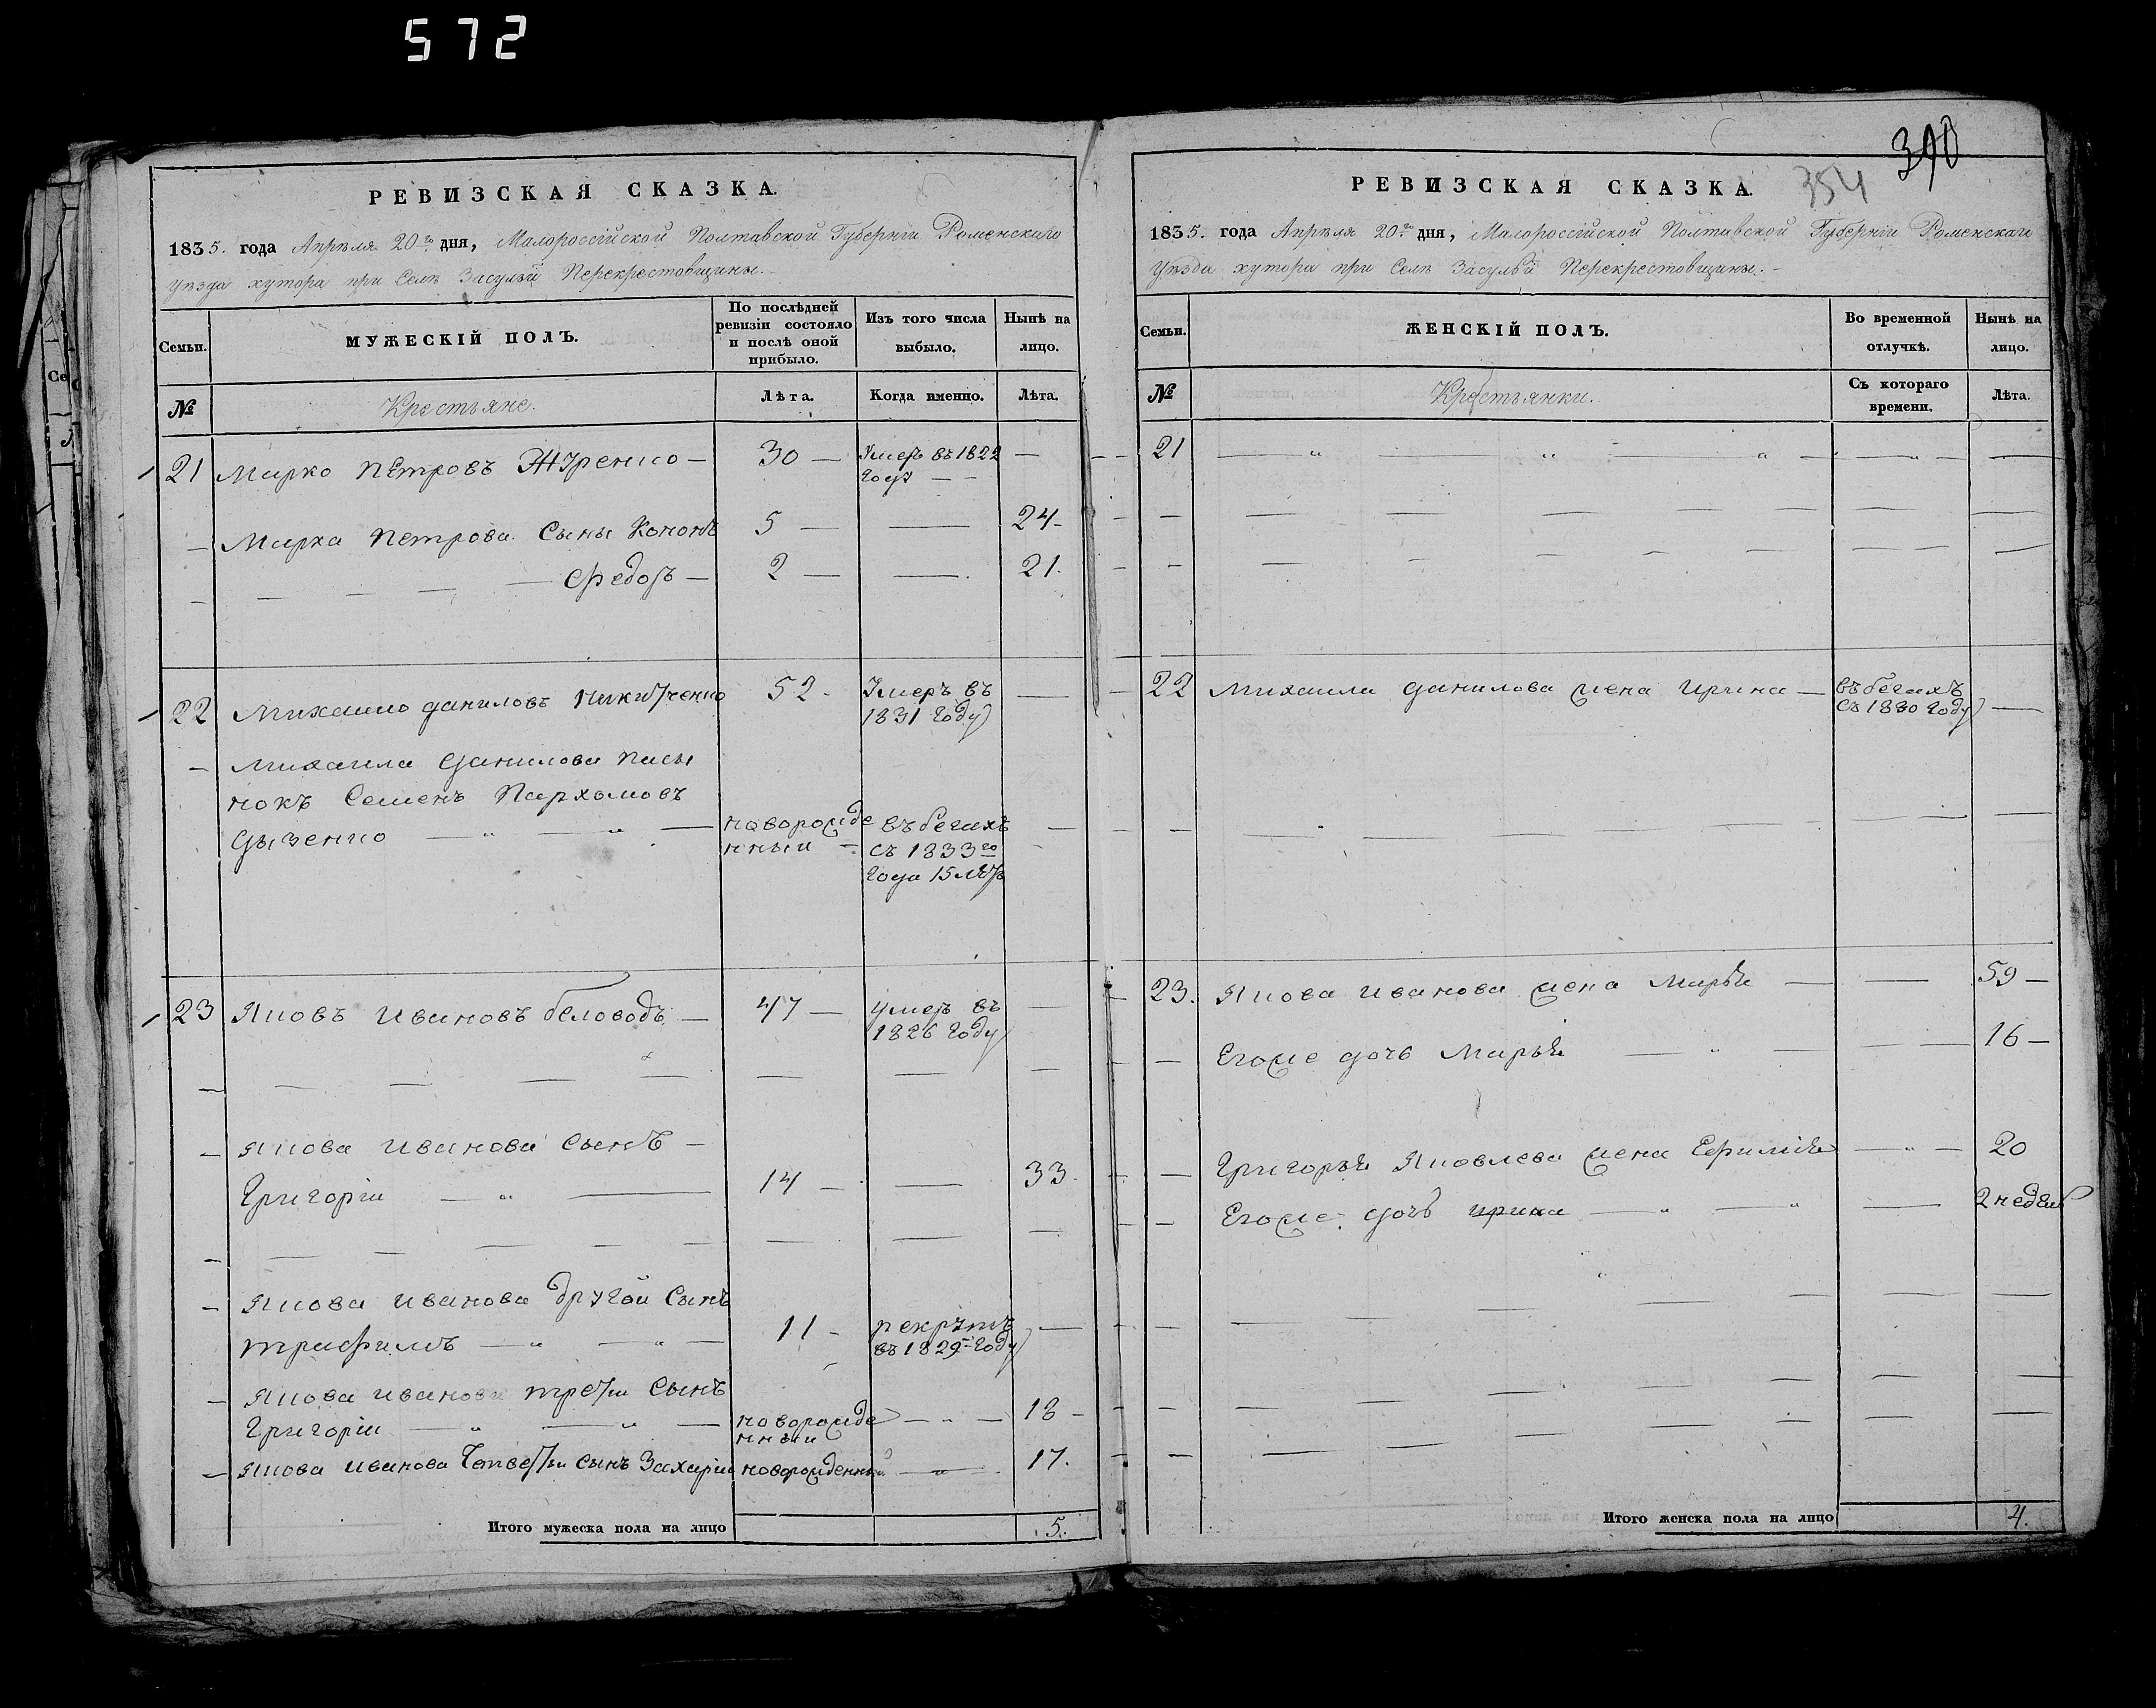 572
РЕВИЗСКАЯ СКАЗКА.
1835. года Апрѣля 20го дня, Малороссійской Полтавской Губерніи Роменскаго
уѣзда хутора при Селѣ Засульи Перекрестовщины.
Семьи.
МУЖЕСКІЙ ПОЛЪ.
По послѣдней ревизіи состояло и послѣ оной прибыло.
Изъ того числа выбыло.
Нынѣ на лицо.
№
Крестьяне.
Лѣта.
Когда именно.
Лѣта.
21 Марко Петровъ — 30 — Умеръ въ 1822 —
году — —
— Марка Петрова Сыны Кононъ 5 — — 24 —
— — — — — — Федоръ — 2 — — 21.
22 Михайло Даниловъ Никитченко 52 - Умеръ въ —
1831 году
— Михаила Данилова пасы
нокъ Семенъ Пархомовъ
Дызенко — „ — „ — новорожде въ бегахъ —
нный — съ 1833го
года 15 летъ
23 Яковъ Ивановъ беловодъ — 47 — умеръ въ —
1826 году
— Якова Иванова Сынъ —
Григорій — „ — 14 — — 33.
— Якова Иванова другой Сынъ
трифимъ — „ — „ — 11 — рекрутъ —
въ 1829 году
— Якова Иванова третій Сынъ
Григорій — „ — „ — новорожде — „ — 18 -
нный
— Якова Иванова Четвертый сынъ Захарій новорожденный — „ — 17.
Итого мужеска пола на лицо 5.
390
354
РЕВИЗСКАЯ СКАЗКА.
1835. года Апрѣля 20го дня, Малороссійской Полтавской Губерніи Роменскаго
Уѣзда хутора при Селѣ Засульи Перекрестовщины. —
Семьи.
ЖЕНСКІЙ ПОЛЪ.
Во временной отлучкѣ.
Нынѣ на лицо.
№
Крестьянки.
Съ котораго времени.
Лѣта.
21 — „ — „ — „ — „ —
22 Михаила Данилова жена Ирина — въ бегахъ
съ 1830 году —
23. Якова Иванова жена Марья — — 59 —
— Егоже дочь Марья — „ — — 16 —
— Григорья Яковлева жена Ефимія — „ — 20
— Егоже дочь ирина — „ — „ — 2 недели
Итого женска пола на лицо 4.